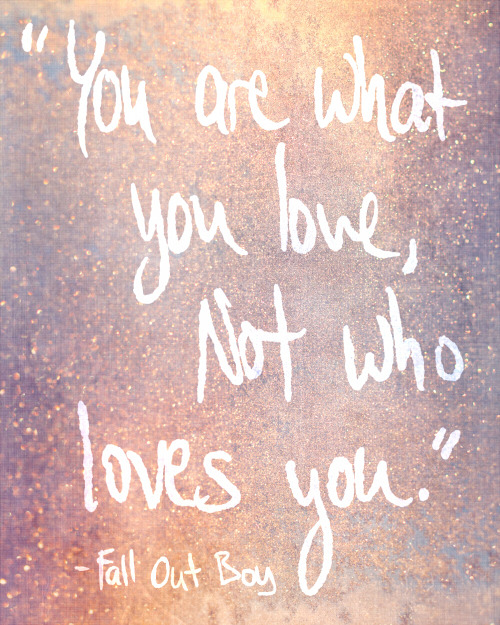 "You are what
you love,
Not who
loves you."
- Fall Out Boy